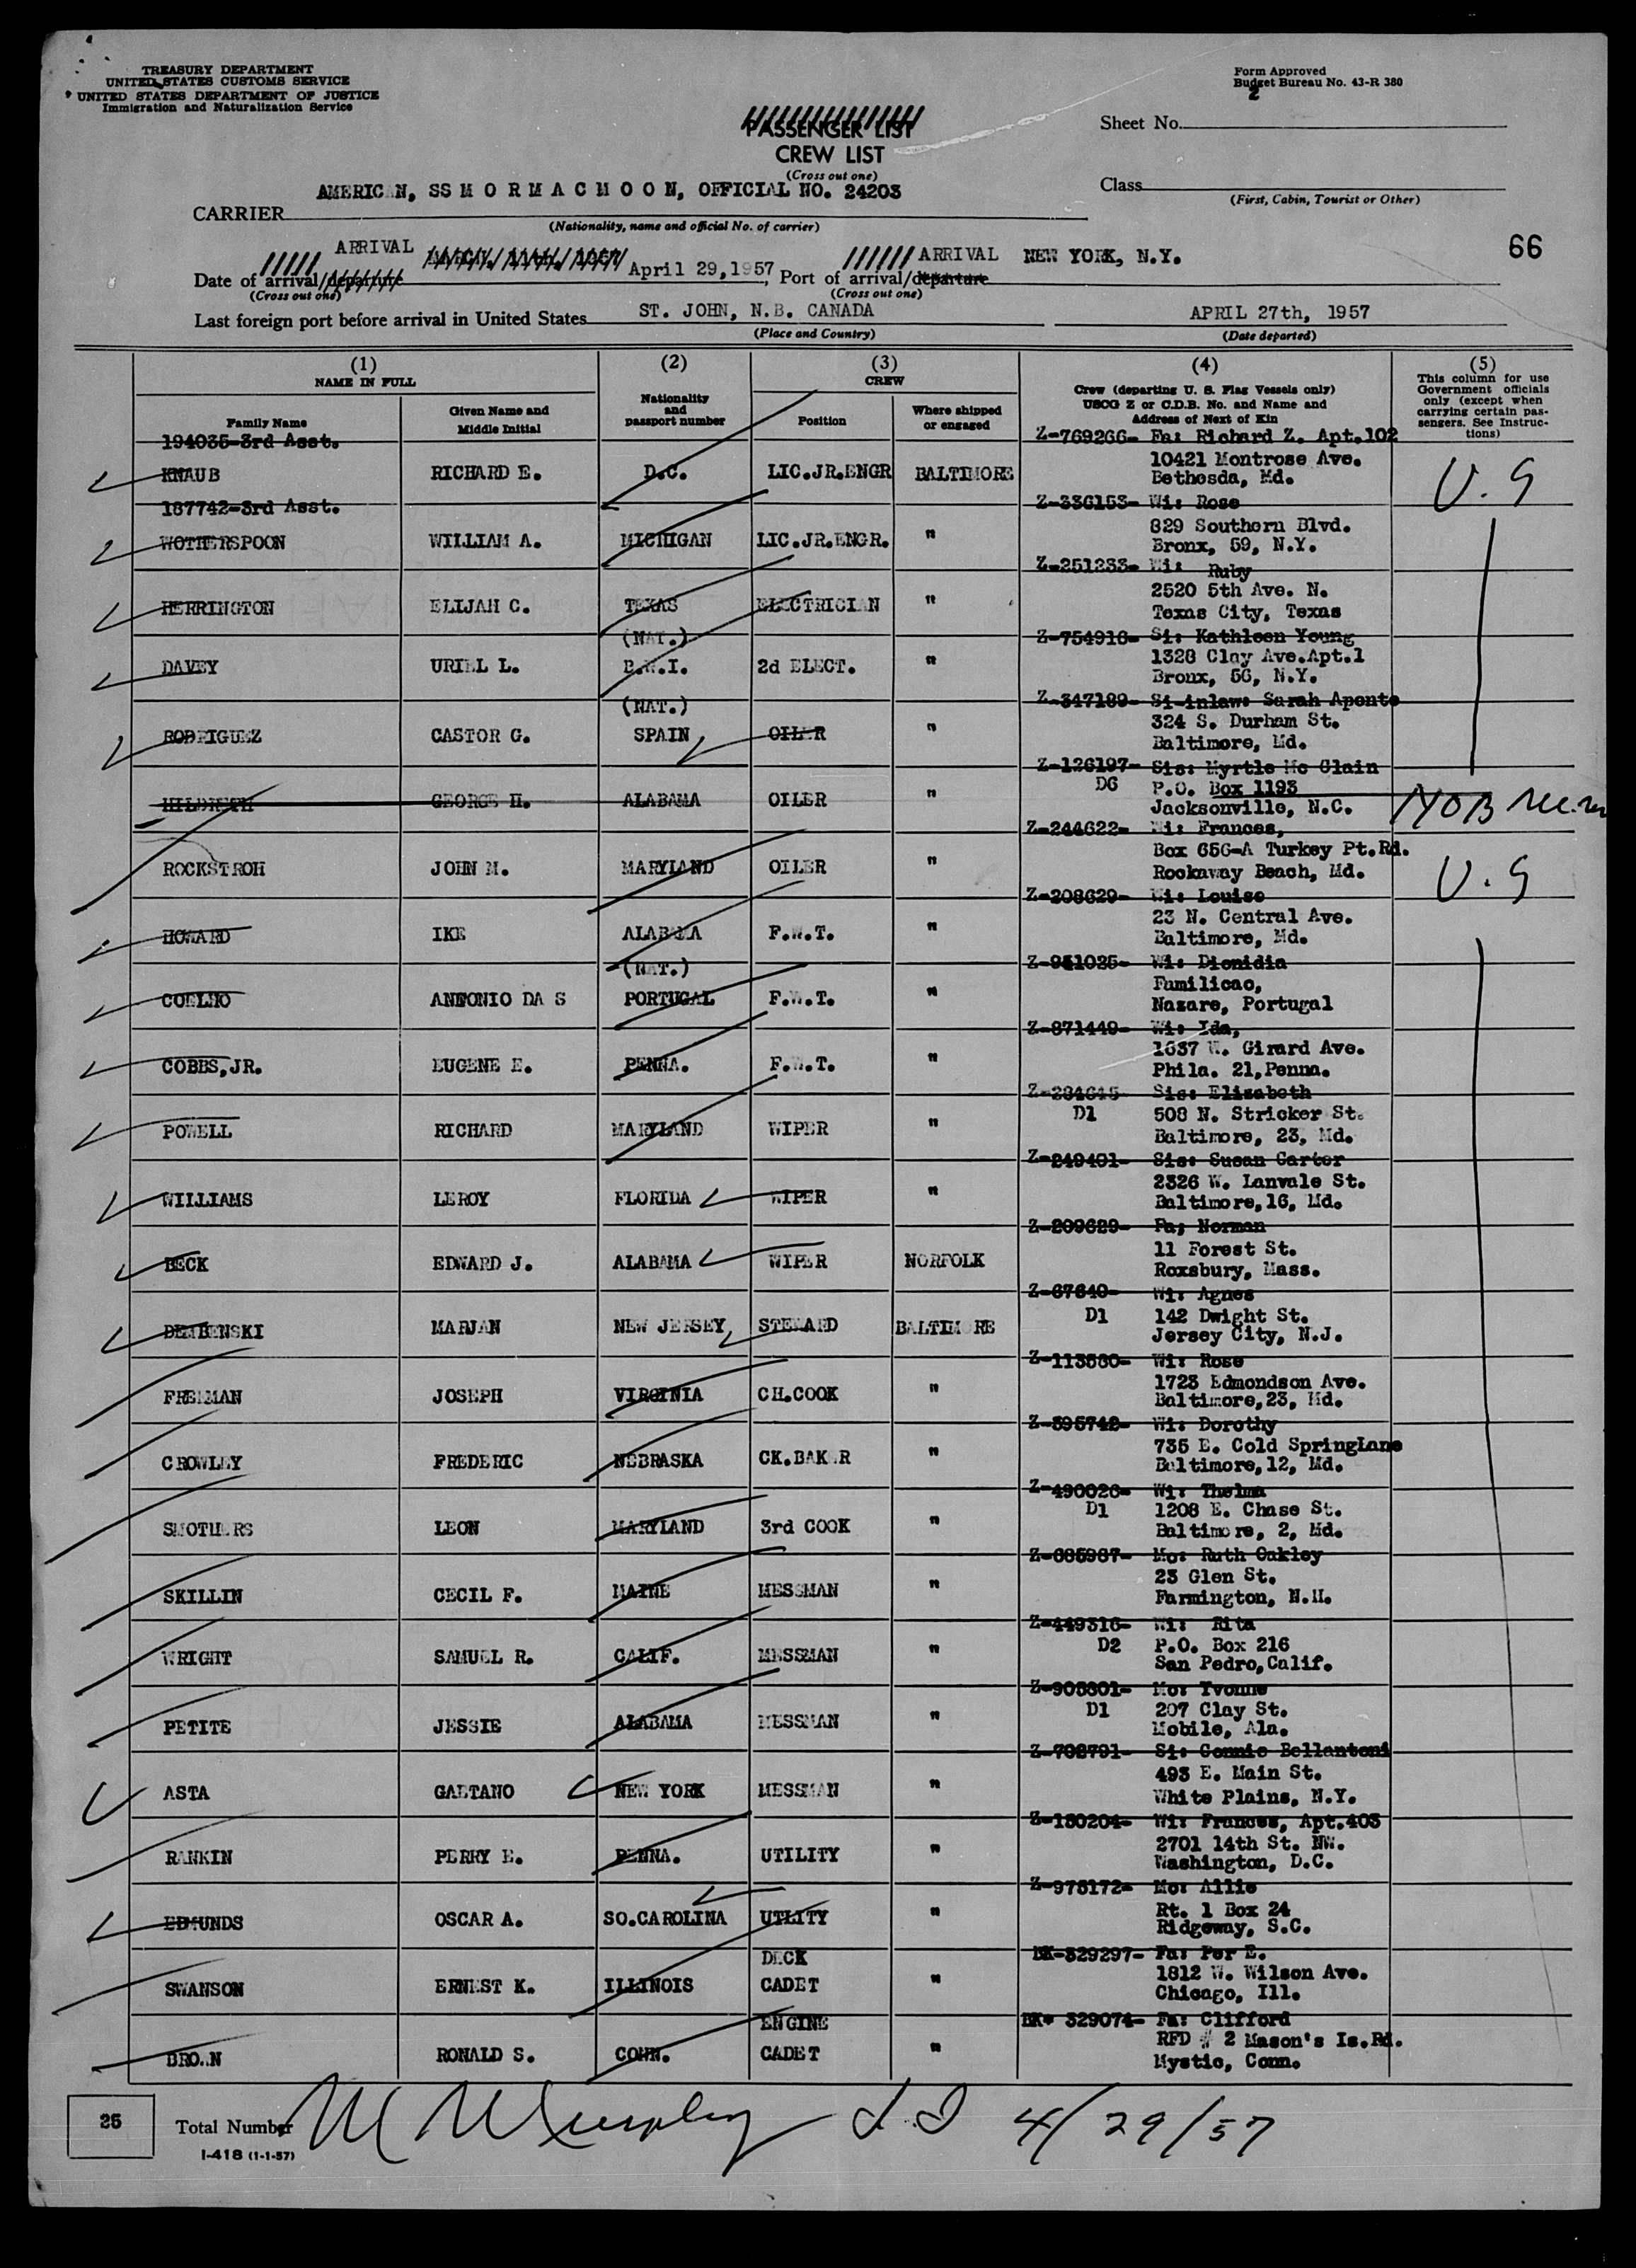 TREASURY DEPARTMENT
UNITED STATES CUSTOMS SERVICE
UNITED STATES DEPARTMENT OF JUSTICE
Immigration and Naturalization Service
Form Approved
Budget Bureau No. 43-R 380
PASSENGER LIST
CREW LIST
(Cross out one)
Sheet No. 2
AMERICAN, SS M O R M A C M O O N, OFFICIAL NO. 24203
CARRIER
(Nationality, name and official No. of carrier)
Class
(First, Cabin, Tourist or Other)
66
ARRIVAL ARRIVAL NEW YORK, N.Y.
Date of arrival/departure April 29, 1957, Port of arrival/departure
(Cross out one) (Cross out one)
Last foreign port before arrival in United States ST. JOHN, N.B. CANADA APRIL 27th, 1957
(Place and Country) (Date departed)
(1) (2) (3) (4) (5)
NAME IN FULL Nationality and passport number CREW
Family Name Given Name and Middle Initial Position Where shipped or engaged
Crew (departing U. S. Flag Vessels only)
USCG Z or C.D.B. No. and Name and
Address of Next of Kin
This column for use
Government officials
only (except when
carrying certain pas-
sengers. See Instruc-
tions)
194035-3rd Asst. Z-769266- Fa: Richard Z. Apt.102
KNAUB RICHARD E. D.C. LIC.JR.ENGR BALTIMORE 10421 Montrose Ave. U.S
Bethesda, Md.
187742-3rd Asst. Z-336153- Wi: Rose
WOTHERSPOON WILLIAM A. MICHIGAN LIC.JR.ENGR. " 829 Southern Blvd.
Bronx, 59, N.Y.
Z-251233- Wi: Ruby
HERRINGTON ELIJAH C. TEXAS ELECTRICIAN " 2520 5th Ave. N.
Texas City, Texas
(NAT.) Z-754916- Si: Kathleen Young
DAVEY URIEL L. B.W.I. 2d ELECT. " 1328 Clay Ave.Apt.1
Bronx, 56, N.Y.
(NAT.) Z-347189- Si-inlaw: Sarah Aponte
RODRIGUEZ CASTOR G. SPAIN OILER " 324 S. Durham St.
Baltimore, Md.
Z-126197- Sis: Myrtle Mc Clain
HILDRETH GEORGE H. ALABAMA OILER " D6 P.O. Box 1193
Jacksonville, N.C. NOB
Z-244622- Wi: Frances,
ROCKSTROH JOHN M. MARYLAND OILER " Box 656-A Turkey Pt.Rd.
Rockaway Beach, Md. U.S
Z-208629- Wi: Louise
HOWARD IKE ALABAMA F.W.T. " 23 N. Central Ave.
Baltimore, Md.
(NAT.) Z-941025- Wi: Dionidia
COELHO ANTONIO DA S PORTUGAL F.W.T. " Familicao,
Nazare, Portugal
Z-871449- Wi: Ida,
COBBS,JR. EUGENE E. PENNA. F.W.T. " 1637 W. Girard Ave.
Phila. 21,Penna.
Z-284645- Sis: Elizabeth
POWELL RICHARD MARYLAND WIPER " D1 508 N. Stricker St.
Baltimore, 23, Md.
Z-249401- Sis: Susan Carter
WILLIAMS LEROY FLORIDA WIPER " 2326 W. Lanvale St.
Baltimore,16, Md.
Z-209629- Fa; Norman
BECK EDWARD J. ALABAMA WIPER NORFOLK 11 Forest St.
Roxsbury, Mass.
Z-67640- Wi: Agnes
DEMBENSKI MARJAN NEW JERSEY STEWARD BALTIMORE D1 142 Dwight St.
Jersey City, N.J.
Z-113580- Wi: Rose
FREEMAN JOSEPH VIRGINIA CH.COOK " 1723 Edmondson Ave.
Baltimore,23, Md.
Z-395742- Wi: Dorothy
CROWLEY FREDERIC NEBRASKA CK.BAKER " 735 E. Cold SpringLane
Baltimore,12, Md.
Z-490026- Wi: Thelma
SMOTHERS LEON MARYLAND 3rd COOK " D1 1208 E. Chase St.
Baltimore, 2, Md.
Z-685987- Mo: Ruth Oakley
SKILLIN CECIL F. MAINE MESSMAN " 23 Glen St.
Farmington, N.H.
Z-449316- Wi: Rita
WRIGHT SAMUEL R. CALIF. MESSMAN " D2 P.O. Box 216
San Pedro,Calif.
Z-903801- Mo: Yvonne
PETITE JESSIE ALABAMA MESSMAN " D1 207 Clay St.
Mobile, Ala.
Z-708791- Si: Connie Bellantoni
ASTA GAETANO NEW YORK MESSMAN " 493 E. Main St.
White Plains, N.Y.
Z-180204- Wi: Frances, Apt.403
RANKIN PERRY E. PENNA. UTILITY " 2701 14th St. NW.
Washington, D.C.
Z-975172- Mo: Allie
EDMUNDS OSCAR A. SO.CAROLINA UTLITY " Rt. 1 Box 24
Ridgeway, S.C.
DECK BK-329297- Fa: Per E.
SWANSON ERNEST K. ILLINOIS CADET " 1812 W. Wilson Ave.
Chicago, Ill.
ENGINE BK# 329074- Fa: Clifford
BROWN RONALD S. CONN. CADET " RFD # 2 Mason's Is.Rd.
Mystic, Conn.
25 Total Number M Murphy 4/29/57
I-418 (1-1-57)